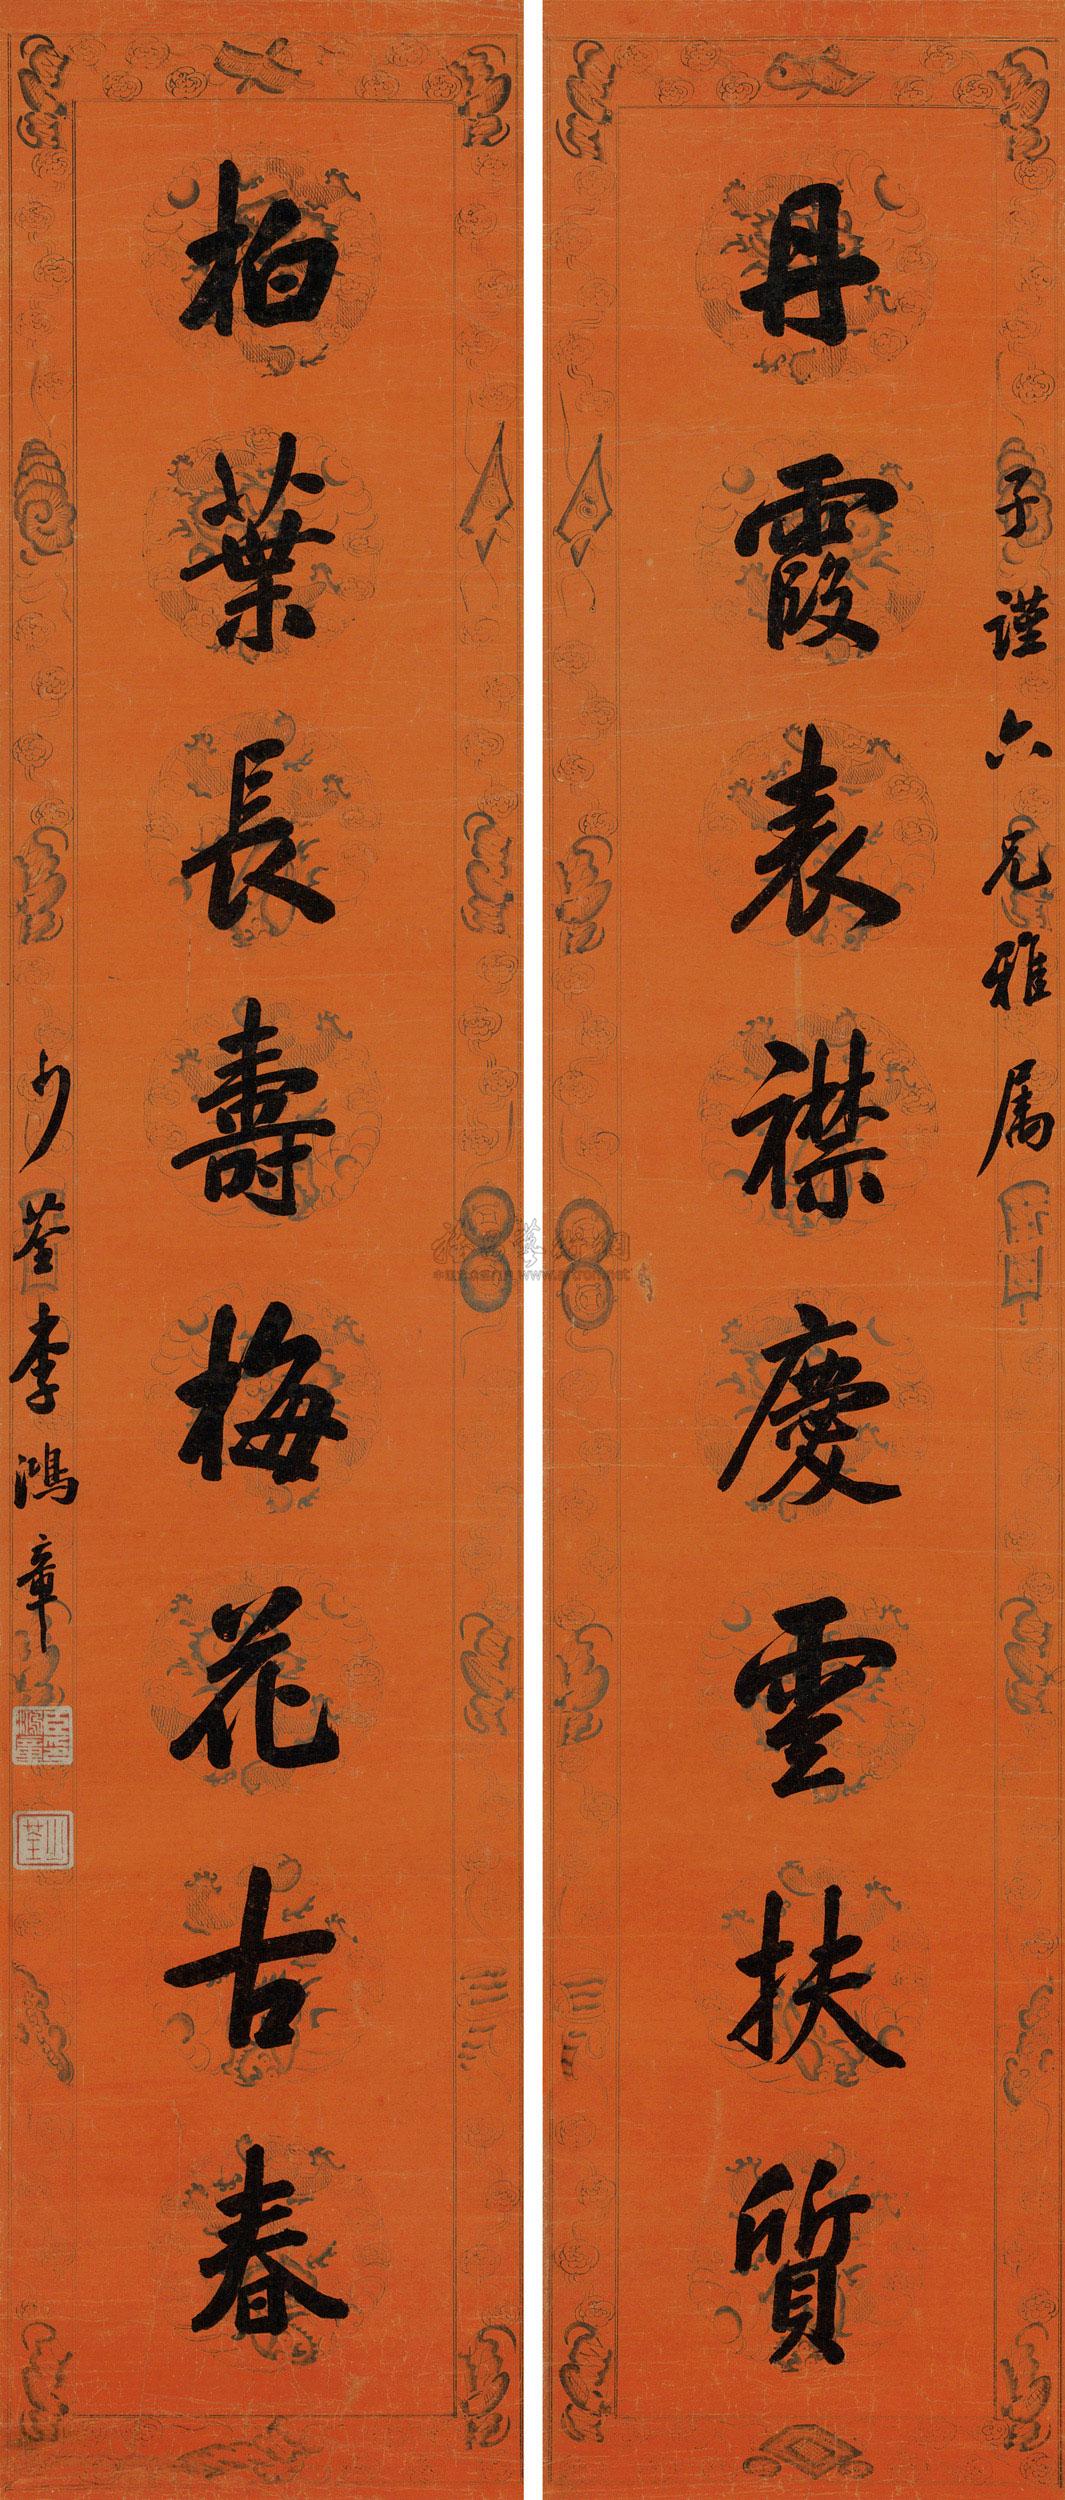 子謹六兄雅属
丹霞表襟慶雲扶質
柏葉長壽梅花古春
少荃李鴻章
少荃
www.artron.net